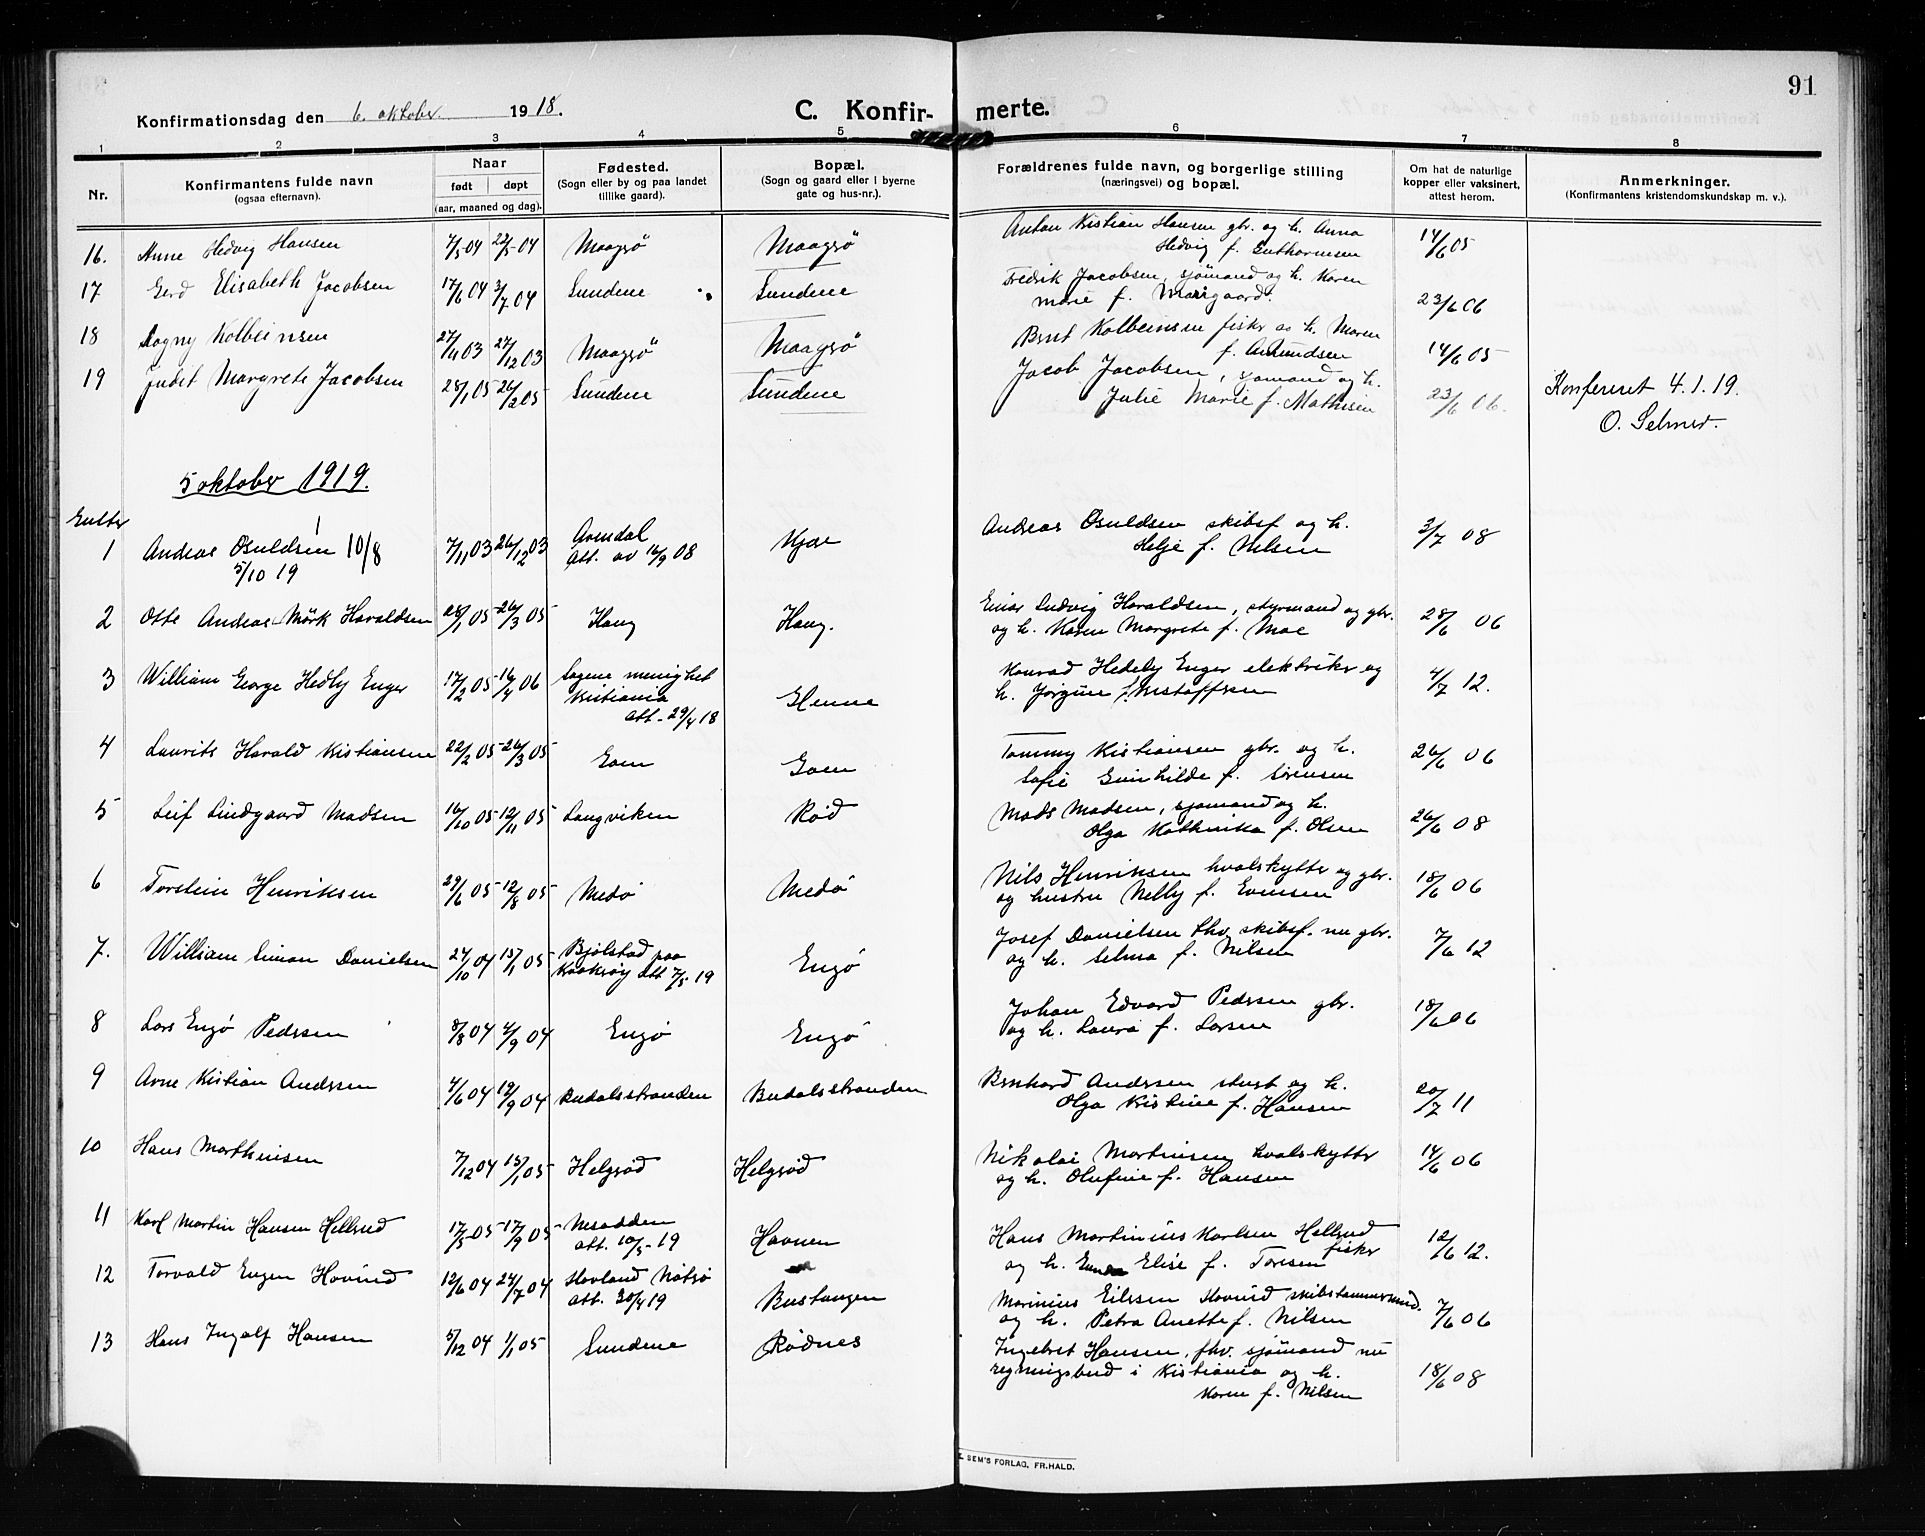 91
Konfirmationsdag den 6. oktober 1918. C. Konfir- merte.
1 2 3 4 5 6 7 8
Nr. Konfirmantens fulde navn (ogsaa efternavn). Naar født døpt (aar, maaned og dag). Fødested. (Sogn eller by og paa landet tillike gaard). Bopæl. (Sogn og gaard eller i byerne gate og hus-nr.). Forældrenes fulde navn, og borgerlige stilling (næringsvei) og bopæl. Om hat de naturlige kopper eller vaksinert, attest herom. Anmerkninger. (Konfirmantens kristendomskundskap m. v.).
16. Anne Hedvig Hansen 7/5 04 22/5 04 Maagerö Maagerö Anton Kristian Hansen gbr. og h. Anna 14/6 05
Hedvig f. Guthormsen
17 Gerd Elisabeth Jacobsen 17/6 04 3/7 04 Sundene Sundene Fredrik Jacobsen, sjømand og h. Karen
Marie f. Marigaard. 23/6 06
18 Dagny Kolbeinsen 27/11 03 27/12 03 Maagerö Maagerö Bernt Kolbeinsen fisker og h. Maren
f. Amundsen 14/6 05
19 Judit Margrete Jacobsen 28/1 05 26/2 05 Sundene Sundene Jacob Jacobsen, sjømand og h.
Julie Marie f. Mathisen 23/6 06. Konferert 4.1.19.
O. Selmer.
5 oktober 1919.
Gutter
1 Andreas Osuldsen 10/8 7/11 03 26/12 03 Arendal Kjær Andreas Osuldsen skibsf. og h. 3/7 08
5/10 19 Att. av 16/9 08 Helje f. Nilsen
2 Otto Andreas Mörk Haraldsen 28/1 05 26/3 05 Haug Haug. Einar Ludvig Haraldsen, styrmand og gbr. 28/6 06
og h. Karen Margrete f. Moe
3 William George Hedly Enger 17/2 05 16/4 06 Sagene menighet Glenne Konrad Hedely Enger elektriker og 4/7 12.
Kristiania h. Jörgine f. Kristoffersen
att. 29/4 18
4 Laurits Harald Kristiansen 22/2 05 26/3 05 Goen Goen Tommy Kristiansen gbr. og h. 26/6 06
Sofie Gunhilde f. Sörensen
5 Leif Lindgaard Madsen 16/10 05 12/11 05 Langviken Röd Mads Madsen, sjömand og h. 26/6 08
Olga Kathinka f. Olsen
6 Torstein Henriksen 29/6 05 12/8 05 Medö Medö Nils Henriksen hvalskytter og gbr. 18/6 06
og hustru Nelly f. Evensen
7. William Simon Danielsen 24/10 04 15/1 05 Bjölstad paa Engö Josef Danielsen fhv. skibsf. nu gbr. 7/6 12
Kraakeröy Att 7/5 19 og h. Selma f. Nilsen
8 Lars Engö Pedersen 8/8 04 4/9 04 Engö Engö Johan Edvard Pedersen gbr. 18/6 06
og h. Laura f. Larsen
9 Arne Kristian Andersen 4/6 04 19/9 04 Budalsstranden Budalsstranden Bernhard Andersen stuert og h. 20/7 11
Olga Kristine f. Hansen
10 Hans Marthinsen 7/12 04 15/1 05 Helgeröd Helgeröd Nikolai Martinsen hvalskytter 14/6 06
og h. Olufine f. Hansen
11 Karl Martin Hansen Hellerud 17/5 05 17/9 05 Nesodden Havnen Hans Martinius Karlsen Hellerud 12/6 12.
att. 10/5 19 og h. Elise f. Toresen fisker
12 Torvald Eugen Hovind 12/6 04 24/7 04 Hovland Nöterö Bustangen Marinius Eilesen Hovind skibstømmermand. 7/6 06
att. 30/4 19 og h. Petra Anette f. Nilsen
13 Hans Ingolf Hansen 5/12 04 1/1 05 Sundene Rödnes Ingebret Hansen, fhv. sjömand nu
regningsbud i Kristiania og h. 18/6 08
Karen f. Nilsen
SEM'S FORLAG, FR.HALD.